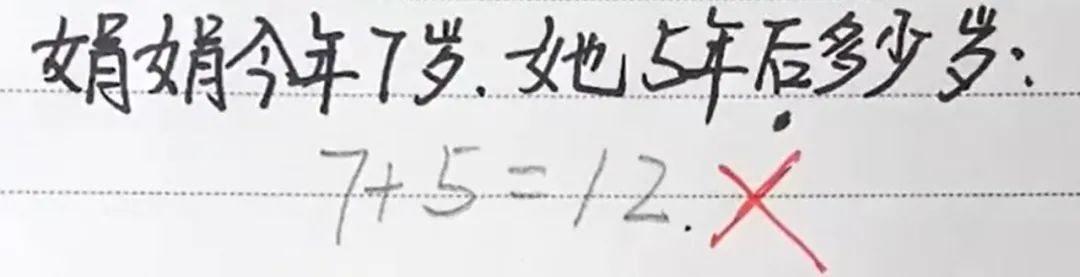 娟娟今年7岁.她5年后多少岁:
7+5=12.